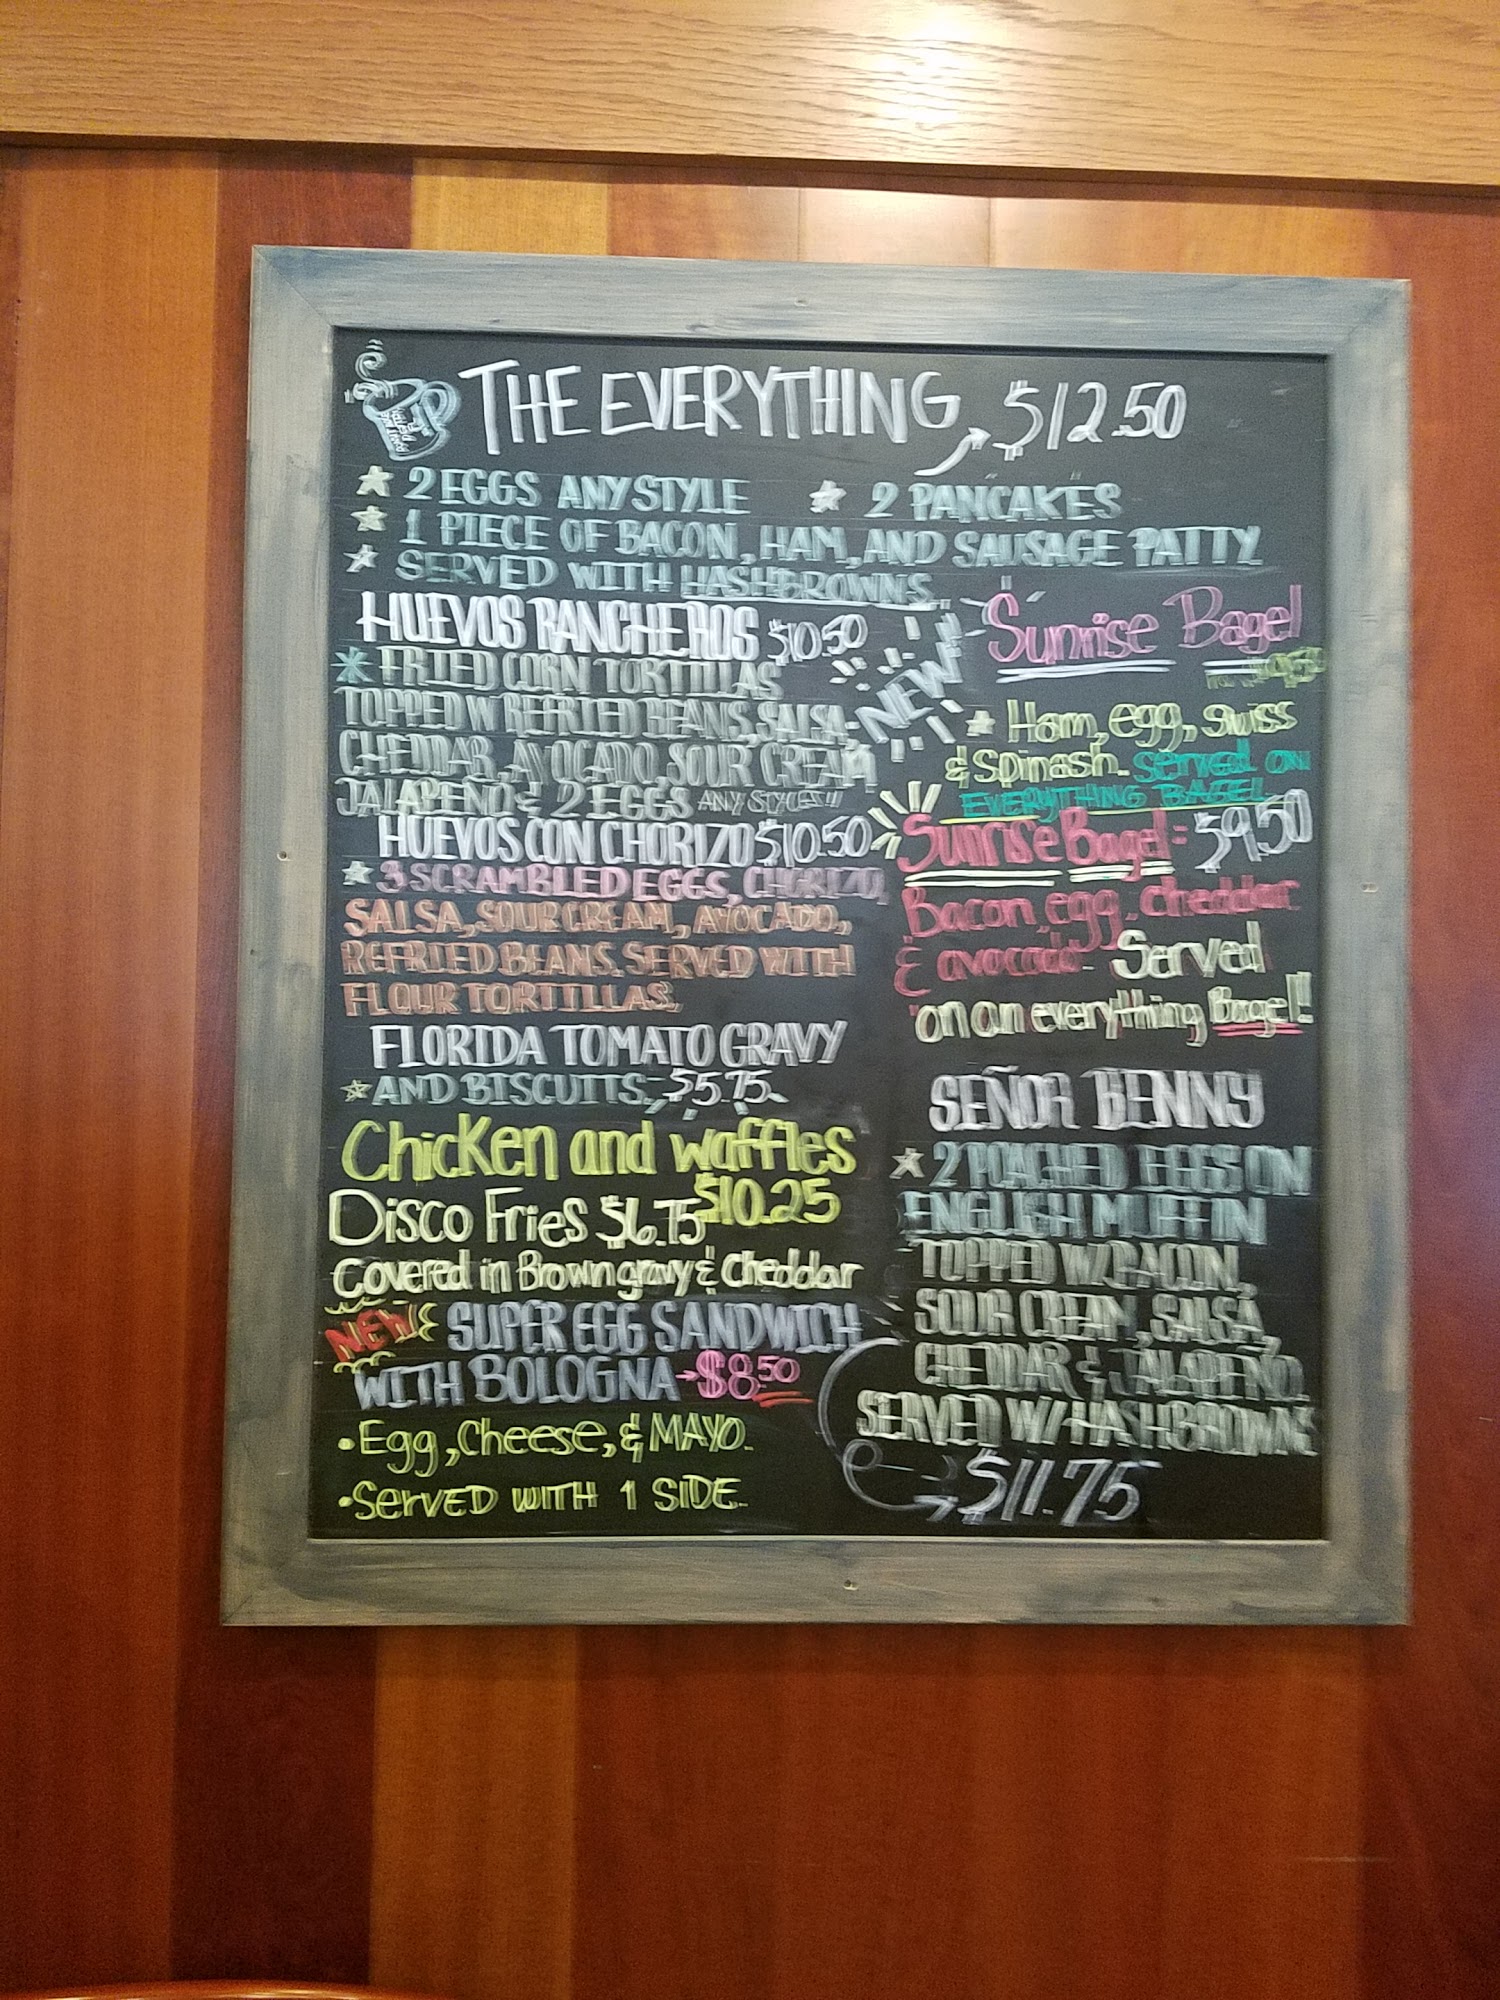 THE EVERYTHING $12.50
2 EGGS ANY STYLE 2 PANCAKES
1 PIECE OF BACON, HAM, AND SAUSAGE PATTY
SERVED WITH HASHBROWNS
HUEVOS RANCHEROS $10.50
FRIED CORN TORTILLAS
TOPPED W REFRIED BEANS, SALSA,
CHEDDAR, AVOCADO, SOUR CREAM
JALAPEÑO & 2 EGGS ANY STYLE!!
HUEVOS CON CHORIZO $10.50
3 SCRAMBLED EGGS, CHORIZO,
SALSA, SOUR CREAM, AVOCADO,
REFRIED BEANS. SERVED WITH
FLOUR TORTILLAS.
FLORIDA TOMATO GRAVY
AND BISCUITS. $5.75
Chicken and waffles
$10.25
Disco Fries $6.75
Covered in Brown gravy & Cheddar
NEW SUPER EGG SANDWICH
WITH BOLOGNA - $8.50
• Egg, Cheese, & MAYO.
• Served WITH 1 SIDE.
NEW
Sunrise Bagel
Ham, egg, swiss
& Spinash. Served on
EVERYTHING BAGEL
Sunrise Bagel = $9.50
Bacon, egg, cheddar
& avocado. Served
on an everything Bagel!
SEÑOR BENNY
2 POACHED EGGS ON
ENGLISH MUFFIN
TOPPED W/BACON,
SOUR CREAM, SALSA,
CHEDDAR & JALAPEÑO.
SERVED W/HASHBROWNS
$11.75